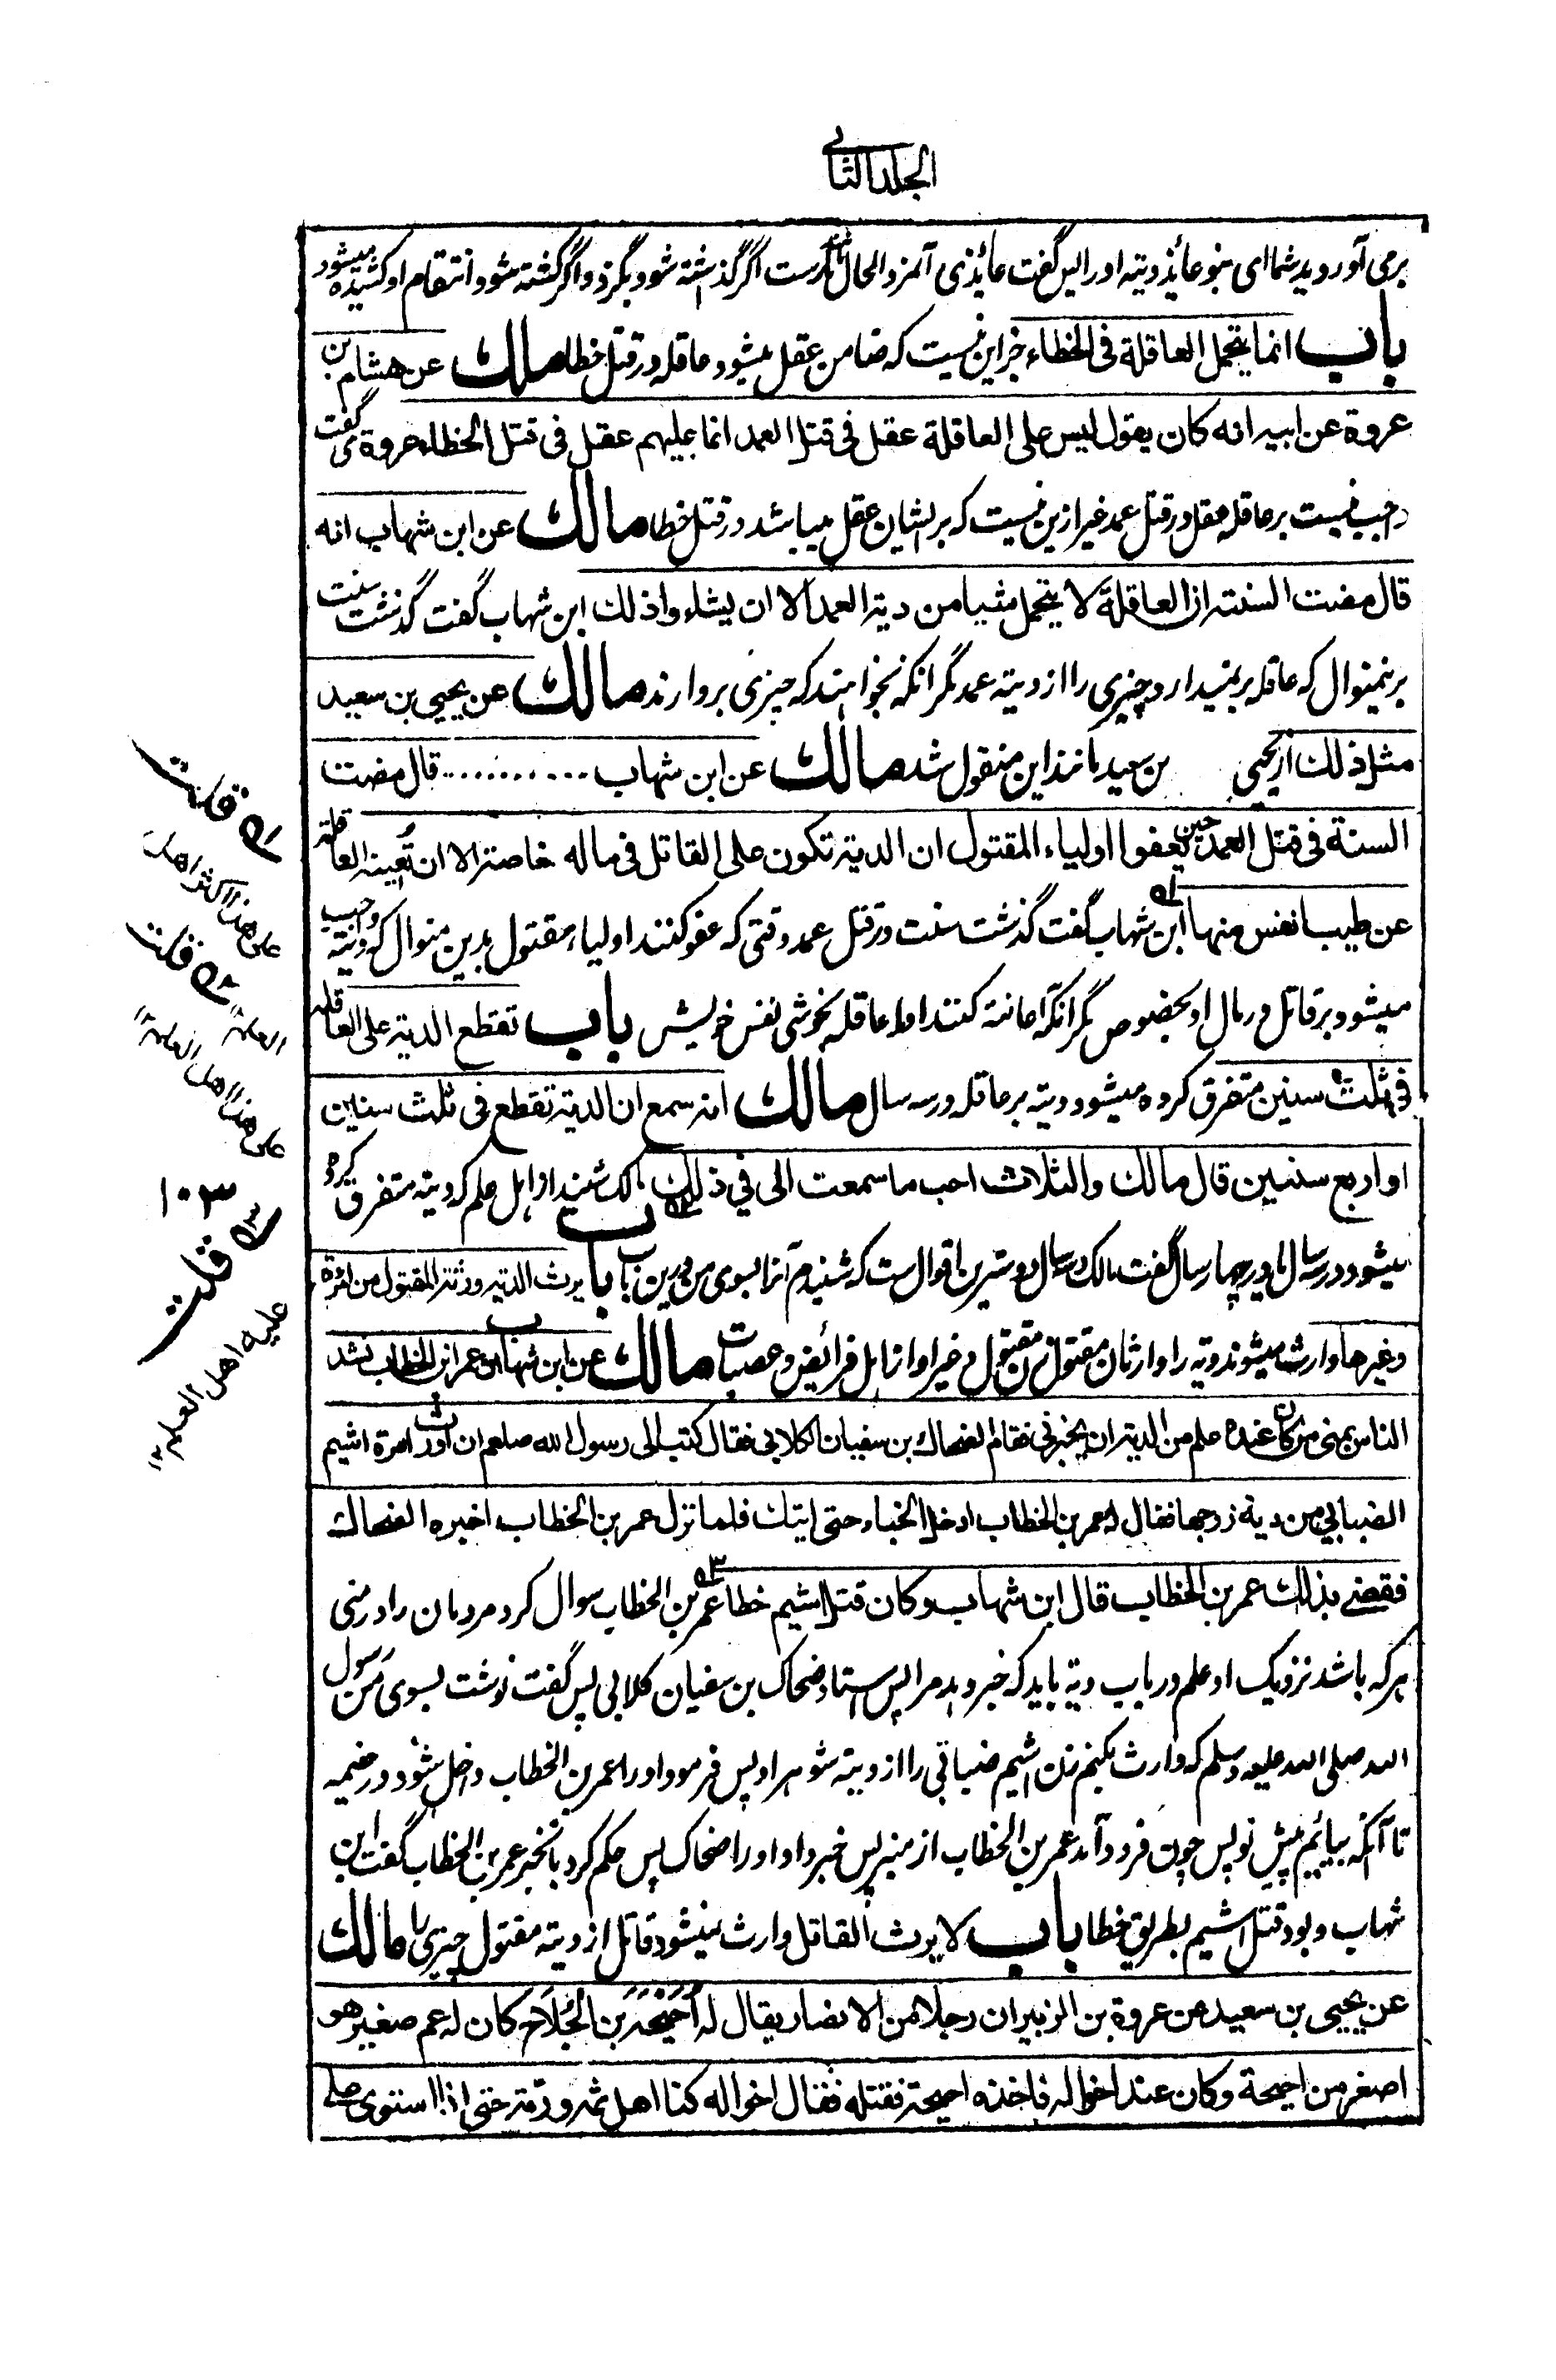 الجلد الثانی
برمی آورید شما ای بنو عائذ دیته او را پس گفت عائذی آنمرد الحال مانند مارست اگر گذاشته شود بگزد و اگر کشته شود انتقام او کشیده میشود
باب انما یتحمل العاقلة فی الخطاء جز این نیست که ضامن عقل میشود عاقله در قتل خطا مالك عن هشام بن
عروة عن ابیه انه کان یقول لیس علی العاقلة عقل فی قتل العمد انما علیهم عقل فی قتل الخطاء عروة می گفت
واجب نیست بر عاقله عقل در قتل عمد غیر ازین نیست که بر ایشان عقل میباشد در قتل خطا مالك عن ابن شهاب انه
قال مضت السنته ان العاقلة لا یتحمل شیئا من دیة العمد الا ان یشاء واذلك ابن شهاب گفت گذشت سنت
برینمنوال که عاقله بر نمیدارد چیزی را از دیته عمد مگر انکه بخواهند که چیزی بردارند مالك عن یحیی بن سعید
مثل ذلك از یحیی بن سعید مانند این منقول شد مالك عن ابن شهاب ............ قال مضت
السنة فی قتل العمد حین یعفوا اولیاء المقتول ان الدیة تکون علی القاتل فی ماله خاصة الا ان تُعینه العاقلة
عن طیب نفس منها ۵۱ ابن شهاب گفت گذشت سنت در قتل عمد وقتی که عفو کنند اولیاء مقتول بدین منوال که دیته واجب
میشود بر قاتل در مال او بخصوص مگر آنکه اعانته کنند او را عاقله بخوشی نفس خویش باب تقطع الدیة علی العاقلة
فی ثلث سنین متفرق کرده میشود دیته بر عاقله در سه سال مالك انه سمع ان الدیة تقطع فی ثلث سنین
او اربع سنین قال مالك والثلاث احب ما سمعت الی فی ذلك ۵۲ مالک شنید از اهل علم که دیته متفرق کرده
میشود در سه سال یا در چهار سال گفت مالک در سه سال دوسترین اقوال ست که شنیدم آنرا بسوی من درین باب باب یرث الدیة ورثة المقتول من امرة
وغیرها وارث میشوند دیته را وارثان مقتول زن مقتول و غیر او از اهل فرائض و عصبات مالك عن ابن شهاب ان عمر ابن الخطاب نشد
الناس بمنی من کان عنده علم من الدیة ان یخبرنی فقام الضحاك بن سفیان الکلابی فقال کتب الی رسول الله صلعم ان اورث امرة اشیم
الضبابی من دیة زوجها فقال له عمر بن الخطاب ادخل الخباء حتی اتیك فلما نزل عمر بن الخطاب اخبره الضحاك
فقضے بذلك عمر بن الخطاب قال ابن شهاب وکان قتل اشیم خطأ ۵۳ عمر بن الخطاب سوال کرد مردمان را در منی
هر که باشد نزدیک او علم در باب دیته باید که خبر دهد مرا پس استاد ضحاک بن سفیان کلابی پس گفت نوشت بسوی من رسول
الله صلی الله علیه وسلم که وارث بکنم زن اشیم ضبابی را از دیته شوهر او پس فرمود او را عمر بن الخطاب داخل شو در خیمه
تا آنکه بیائیم پیش تو پس چون فرود آمد عمر بن الخطاب از منبر پس خبر داد او را ضحاک پس حکم کرد بآنخبر عمر بن الخطاب گفت ابن
شهاب و بود قتل اشیم بطریق خطا باب لا یرث القاتل وارث نمیشود قاتل از دیته مقتول چیزی را مالك
عن یحیی بن سعید عن عروة بن الزبیر ان رجلا من الانصار یقال له اُحَیْحَةَ بن الجُلَاح کان له عم صغیر هو
اصغر من احیحة وکان عند اخواله فاخذه احیحة فقتله فقال اخواله کنا اهل ثمه ورمه حتی اذا استوی علی
۵۱ قلت
علی هذا اکثر اهل
العلم ۱۲
۵۲ قلت
علی هذا اهل العلم ۱۲
۱۰۳
۵۳ قلت
علیه اهل العلم ۱۲